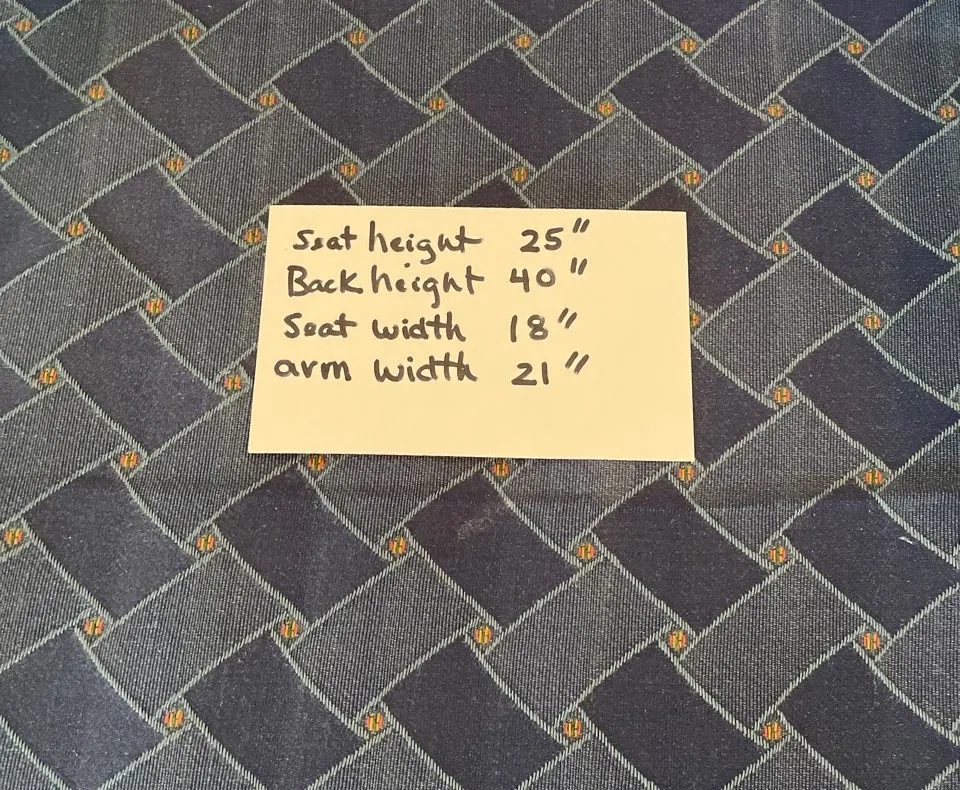 Seat height 25"
Back height 40"
Seat width 18"
arm width 21"